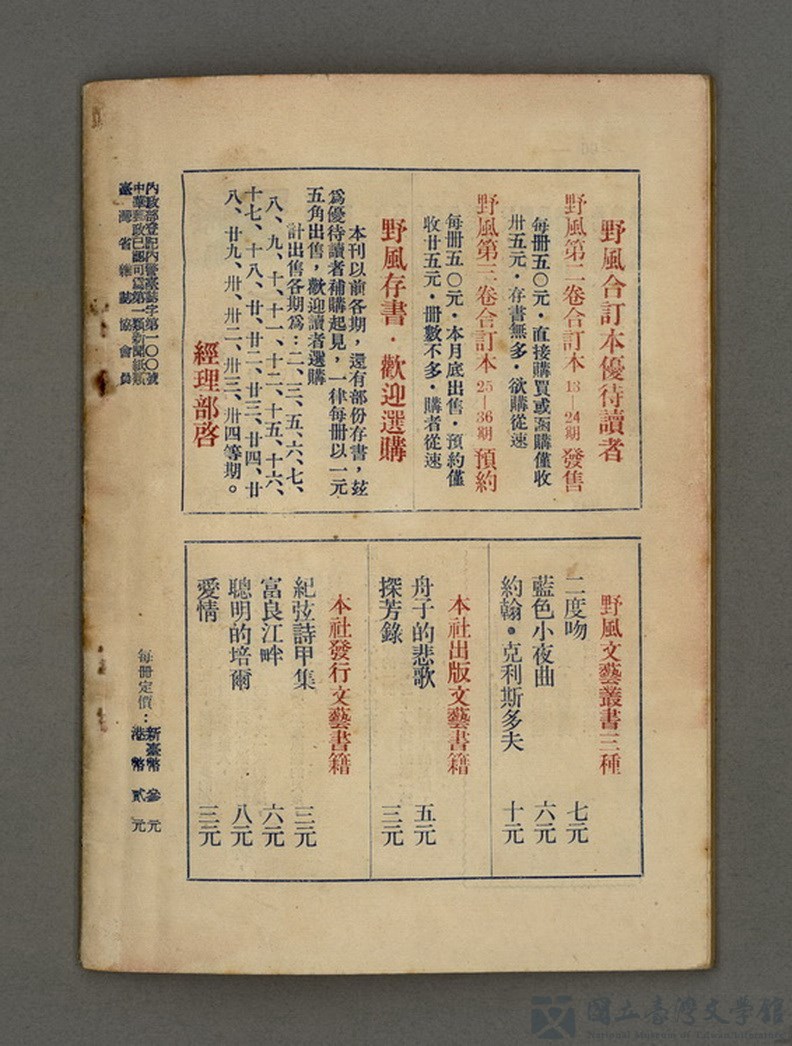 野風合訂本優待讀者
野風第二卷合訂本 13—24期 發售
每冊五〇元・直接購買或函購僅收
卅五元・存書無多・欲購從速
野風第三卷合訂本 25—36期 預約
每冊五〇元・本月底出售・預約僅
收廿五元・冊數不多・購者從速
野風存書・歡迎選購
本刊以前各期，還有部份存書，玆
爲優待讀者補購起見，一律每冊以一元
五角出售，歡迎讀者選購
計出售各期爲：二、三、五、六、七、
八、九、十、十一、十二、十五、十六、
十七、十八、廿、廿二、廿三、廿四、廿
八、廿九、卅、卅二、卅三、卅四等期。
經理部啓
野風文藝叢書三種
二度吻 七元
藍色小夜曲 六元
約翰・克利斯多夫 十元
本社出版文藝書籍
舟子的悲歌 五元
探芳錄 三元
本社發行文藝書籍
紀弦詩甲集 三元
富良江畔 六元
聰明的培爾 八元
愛情 三元
內政部登記內警臺誌字第一〇〇號
中華郵政已認可爲第一類新聞紙類
臺灣省雜誌協會會員
每冊定價：新臺幣 參元
港幣 貳元
國立臺灣文學館
National Museum of Taiwan Literature